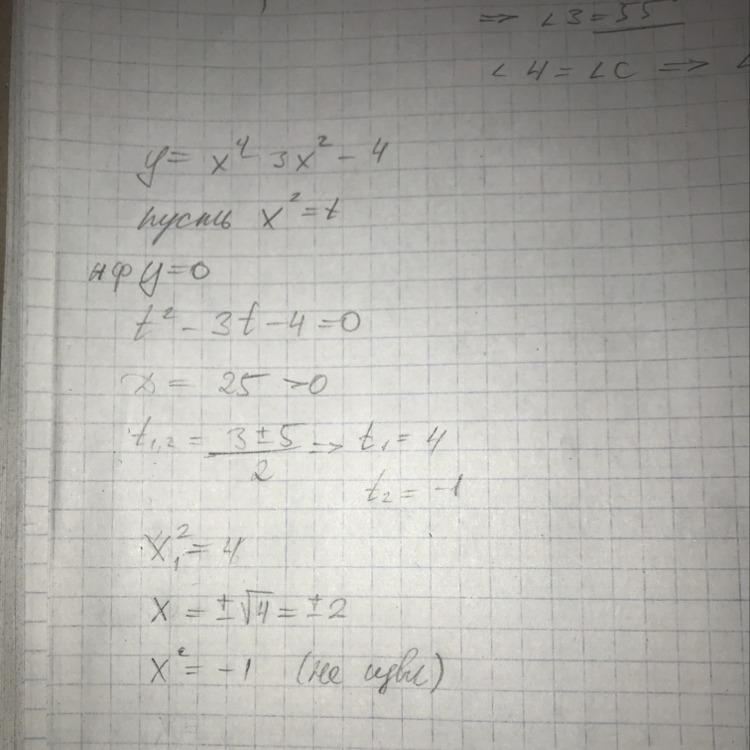 => ∠3 = 55
∠4 = ∠C => ∠
y = x⁴ 3x² - 4
пусть x² = t
нф y = 0
t² - 3t - 4 = 0
D = 25 > 0
t₁,₂ = (3 ± 5)/2 => t₁ = 4
t₂ = -1
x₁² = 4
x = ± √4 = ± 2
x² = -1 (не извл)